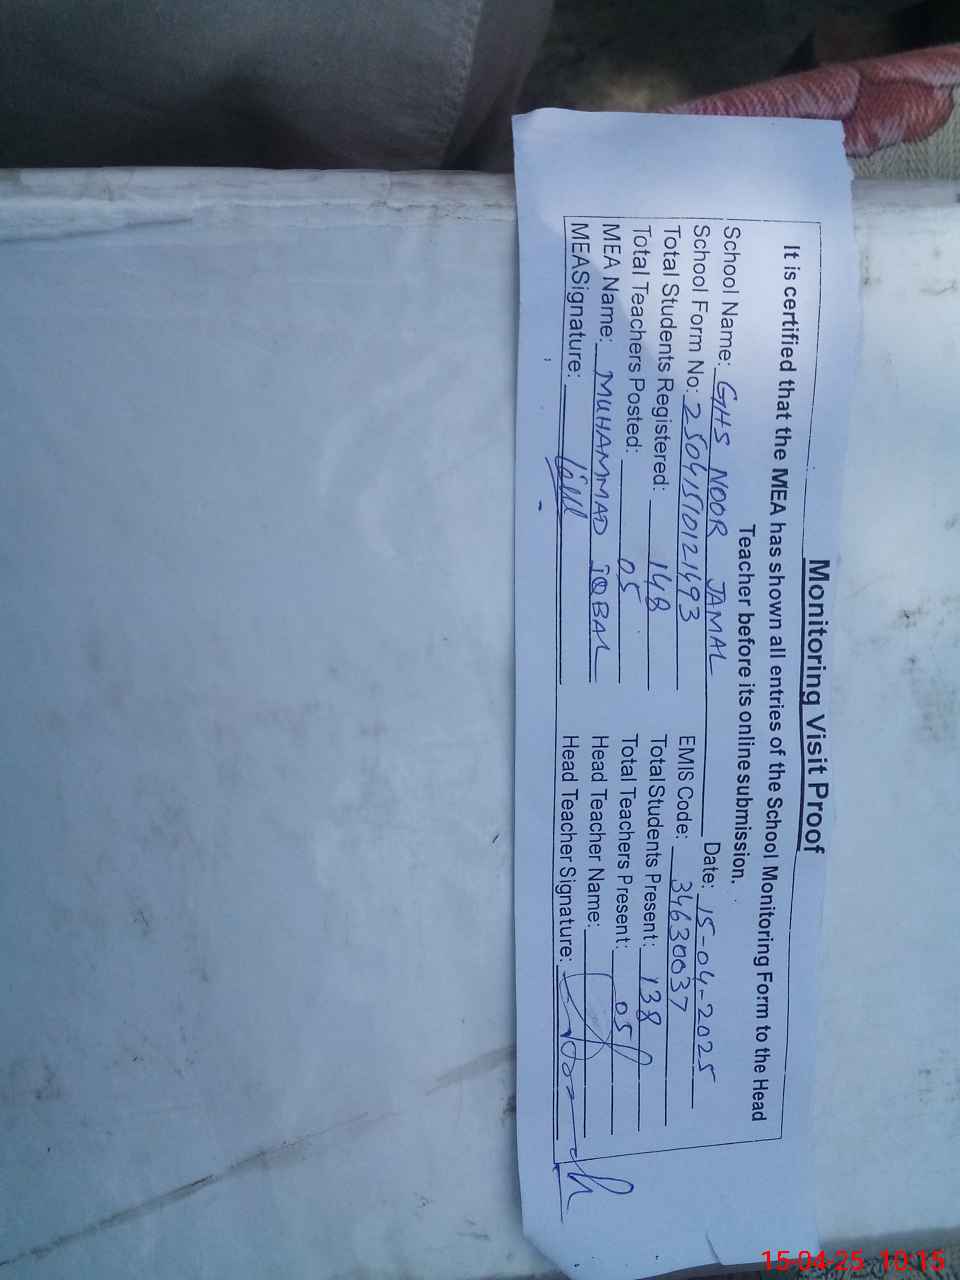 Monitoring Visit Proof
It is certified that the MEA has shown all entries of the School Monitoring Form to the Head
Teacher before its online submission.
School Name: GHS NOOR JAMAL Date: 15-04-2025
School Form No: 25041510121493 EMIS Code: 34630037
Total Students Registered: 148 Total Students Present: 138
Total Teachers Posted: 05 Total Teachers Present: 05
MEA Name: MUHAMMAD IQBAL Head Teacher Name:
MEASignature: Head Teacher Signature:
15-04-25 10:15